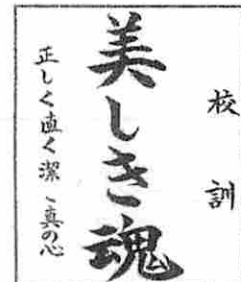 校訓
美しき魂
正しく直く潔く真の心